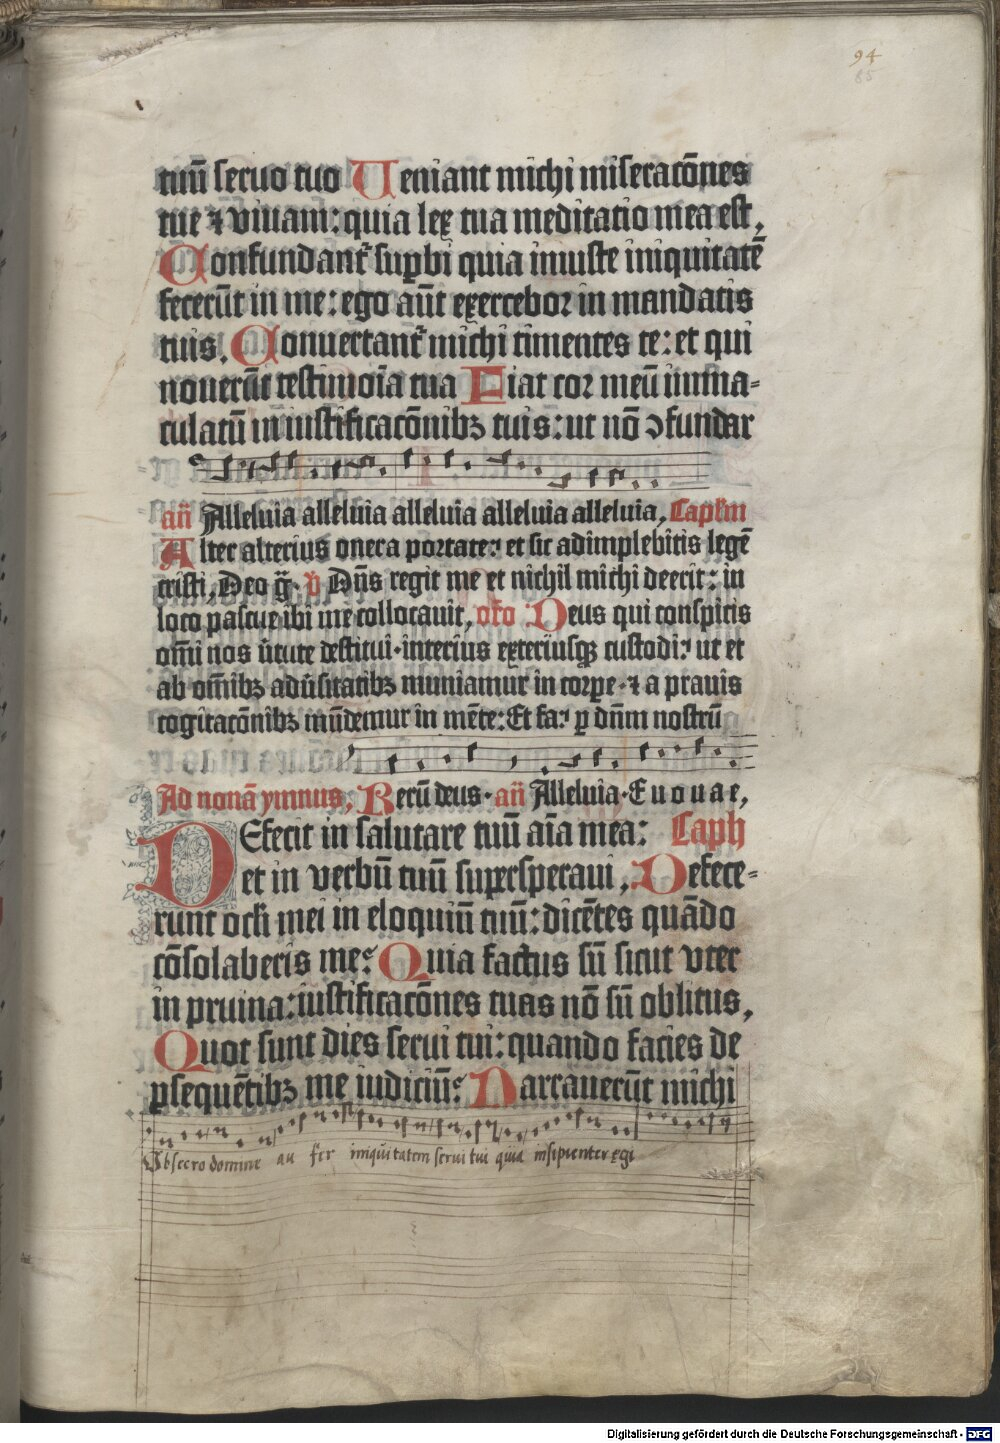 94
85
tuū seruo tuo Ueniant michi miseracōnes
tue ⁊ viuam: quia lex tua meditatio mea est,
Confundant᷑ suꝑbi quia iniuste iniquitatē
fecerūt in me: ego aūt exercebor in mandatis
tuis. Conuertant᷑ michi timentes te: et qui
nouerūt testimoīa tua Fiat cor meū imma-
culatū in iustificacōnibꝫ tuis: ut nō ↄfundar
añ Alleluia alleluia alleluia alleluia alleluia, Capl'm
Alter alterius onera portate: et sic adimplebitis legē
cristi, Deo g̃. v̄ Dn̄s regit me et nichil michi deerit: in
loco pascue ibi me collocauit, or̄o Deus qui conspicis
om̄i nos v̓tute destitui· interius exteriusqꝫ custodi: ut et
ab om̄ibꝫ adu̓sitatibꝫ muniamur in corꝑe· ⁊ a prauis
cogitacōnibꝫ mūdemur in mēte: Et fa: ꝑ dn̄m nostrū
Ad nonā ymnus, Rerū deus· añ Alleluia· E u o u a e,
DEfecit in salutare tuū aīa mea: Caph
et in verbū tuū supersperaui, Defece-
runt oc̄li mei in eloquiū tuū: dicētes quādo
cōsolaberis me: Quia factus sū sicut vter
in pruina: iustificacōnes tuas nō sū oblitus,
Quot sunt dies serui tui: quando facies de
ꝑsequētibꝫ me iudiciū: Narrauerūt michi
Obsecro domine au fer iniquitatem serui tui quia insipienter egi
Digitalisierung gefördert durch die Deutsche Forschungsgemeinschaft - DFG